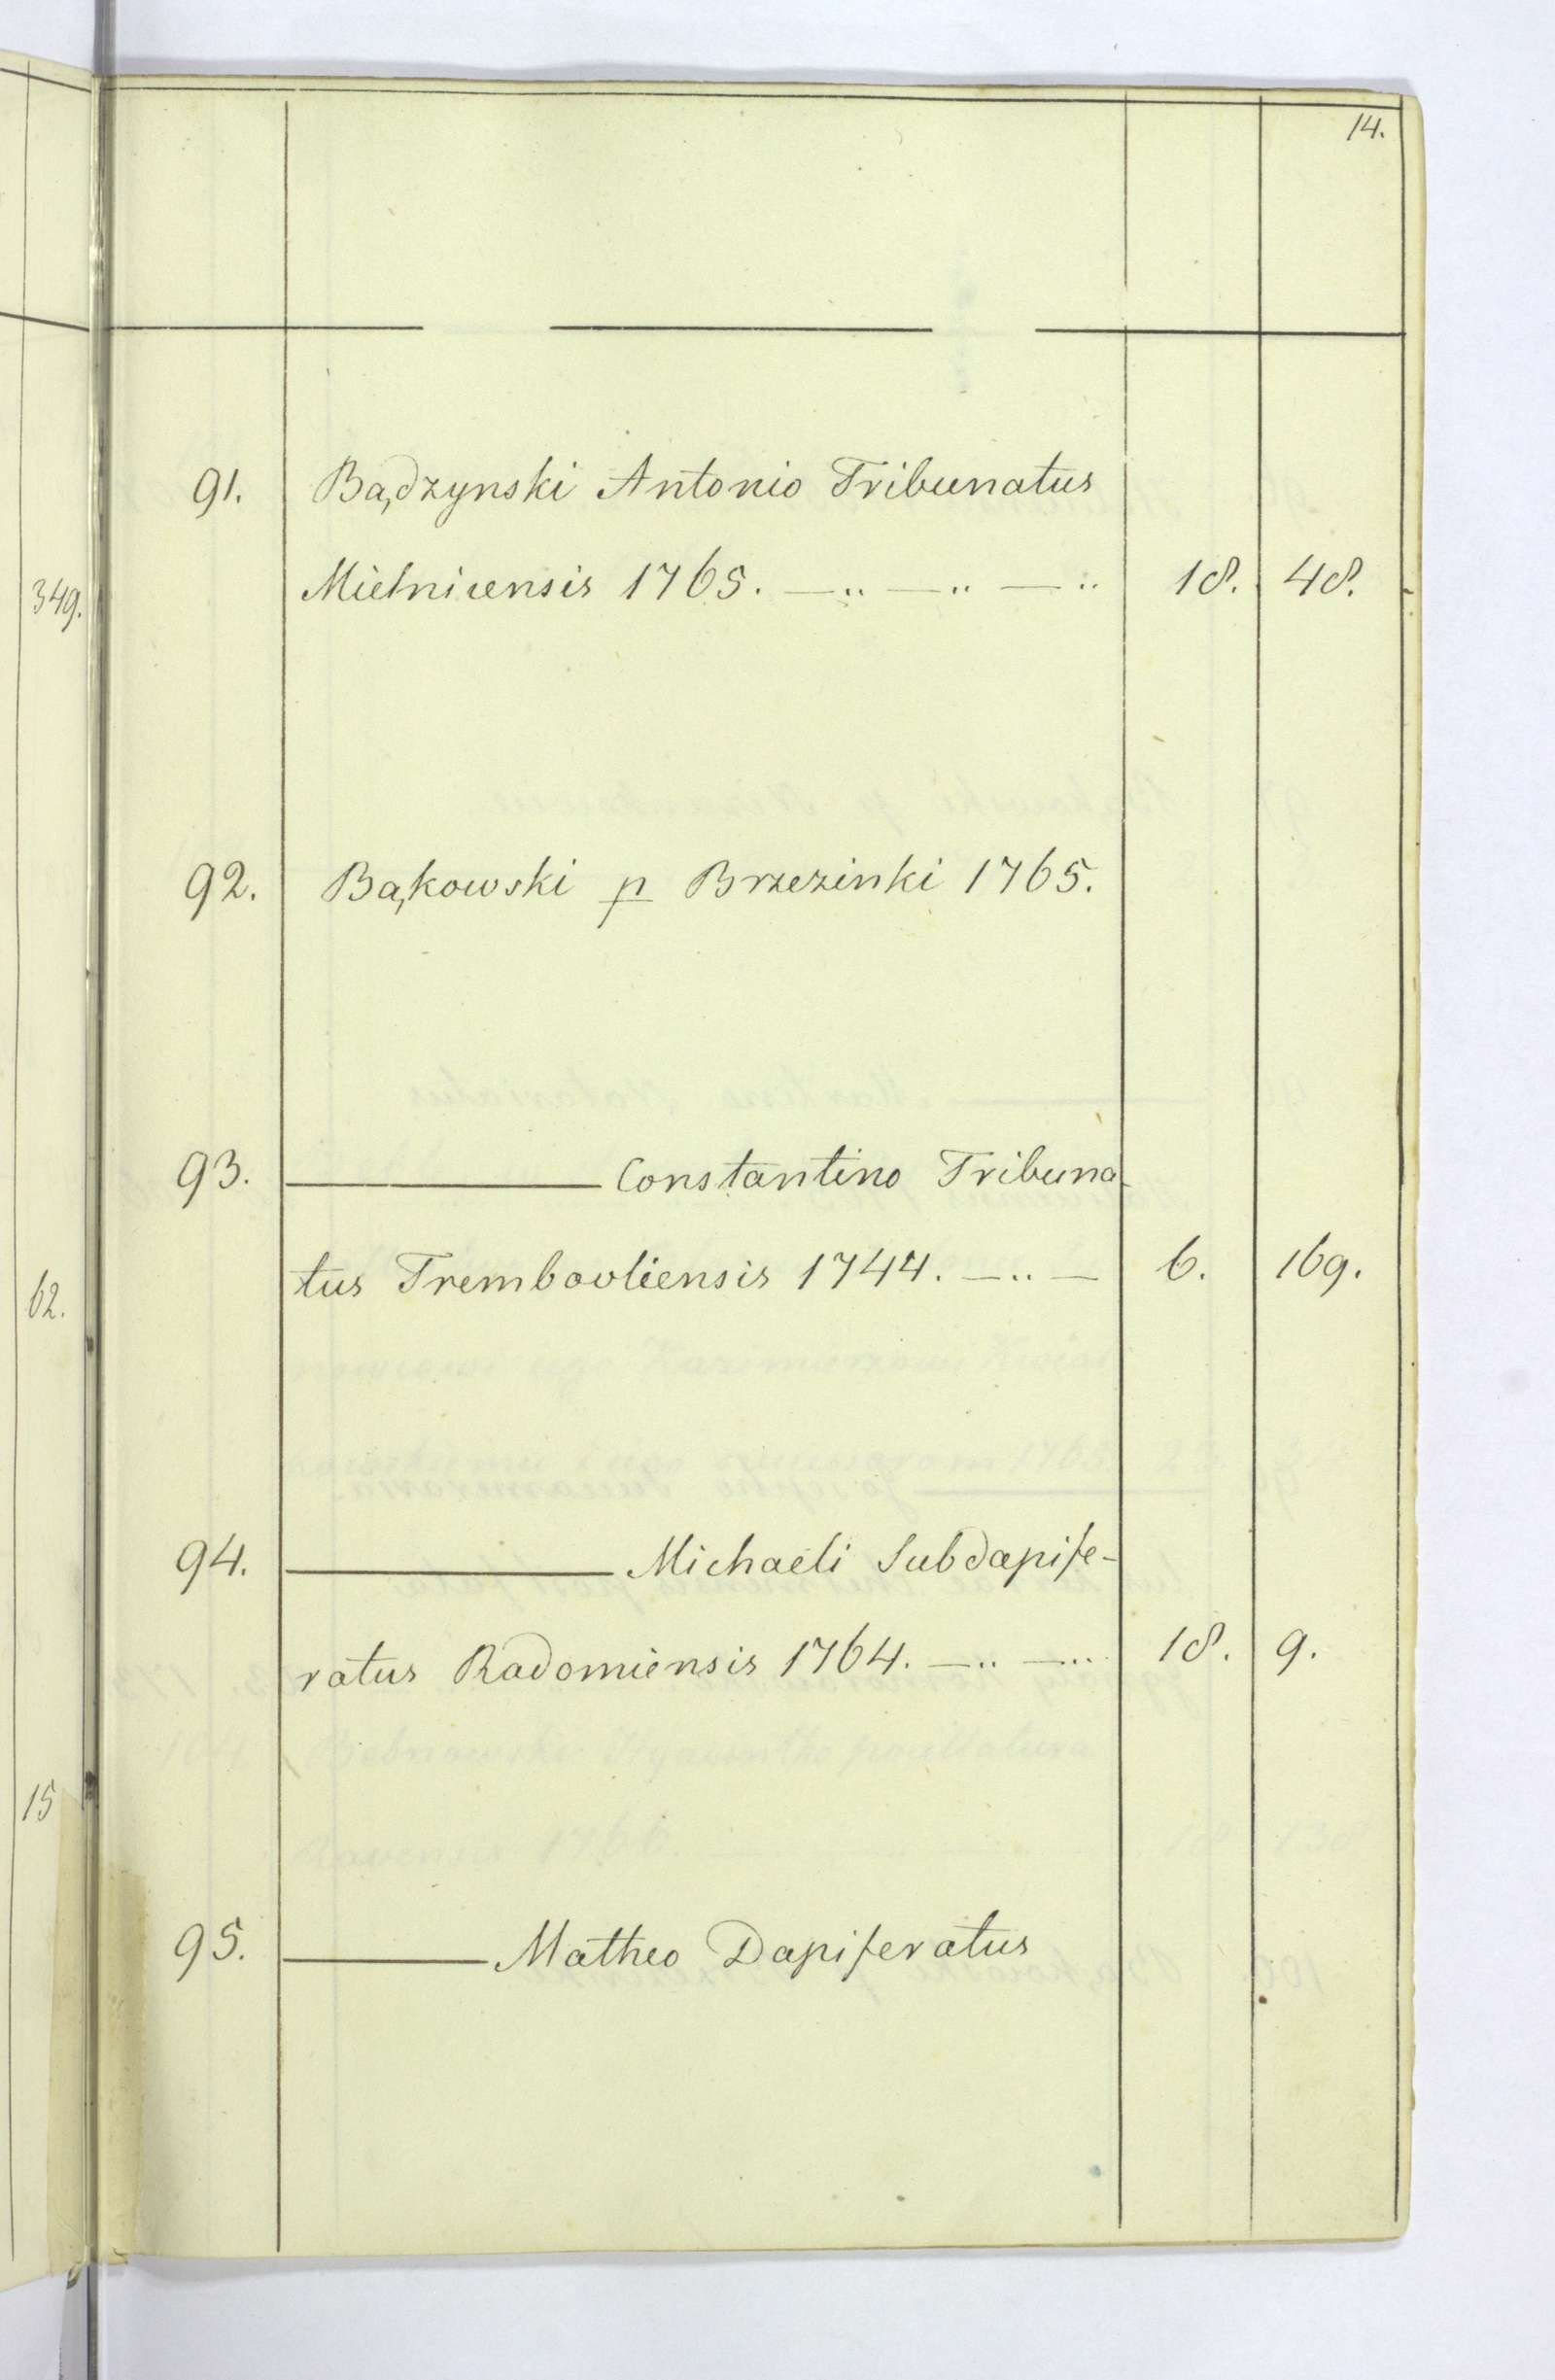 14.
91. Bądzynski Antonio Tribunatus
349.
Mielnicensis 1765. —..—..—.. 18. 48.
92. Bąkowski p Brzezinki 1765.
93. ——— Constantino Tribuna-
62.
tus Trembovliensis 1744. —..— 6. 169.
94. ——— Michaeli Subdapife-
ratus Radomiensis 1764. —..—.. 18. 9.
15
95. ——— Matheo Dapiferatus